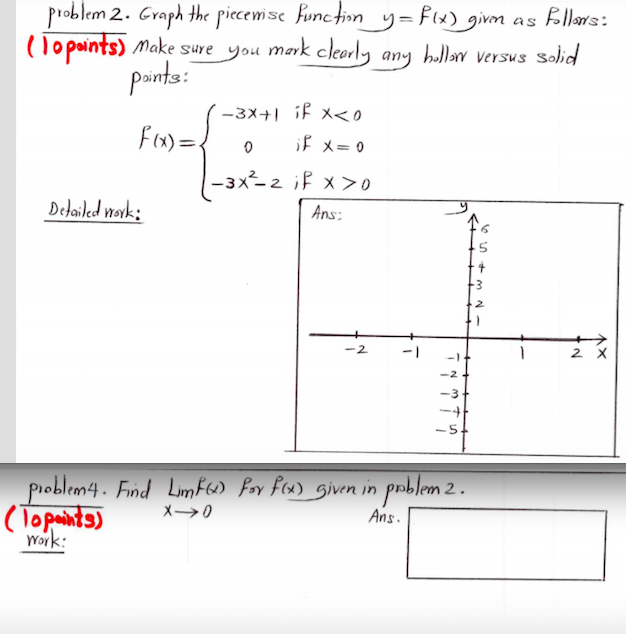 problem 2. Graph the piecewise function y = f(x) given as follows:
(10 points) Make sure you mark clearly any hollow versus solid
points:
f(x) = { -3x+1 if x<0
0 if x=0
-3x²-2 if x>0
Detailed work:
Ans:
y
6
5
4
3
2
1
-2 -1 1 2 x
-1
-2
-3
-4
-5
problem 4. Find Lim f(x) for f(x) given in problem 2.
x→0
(10 points)
Ans.
Work: